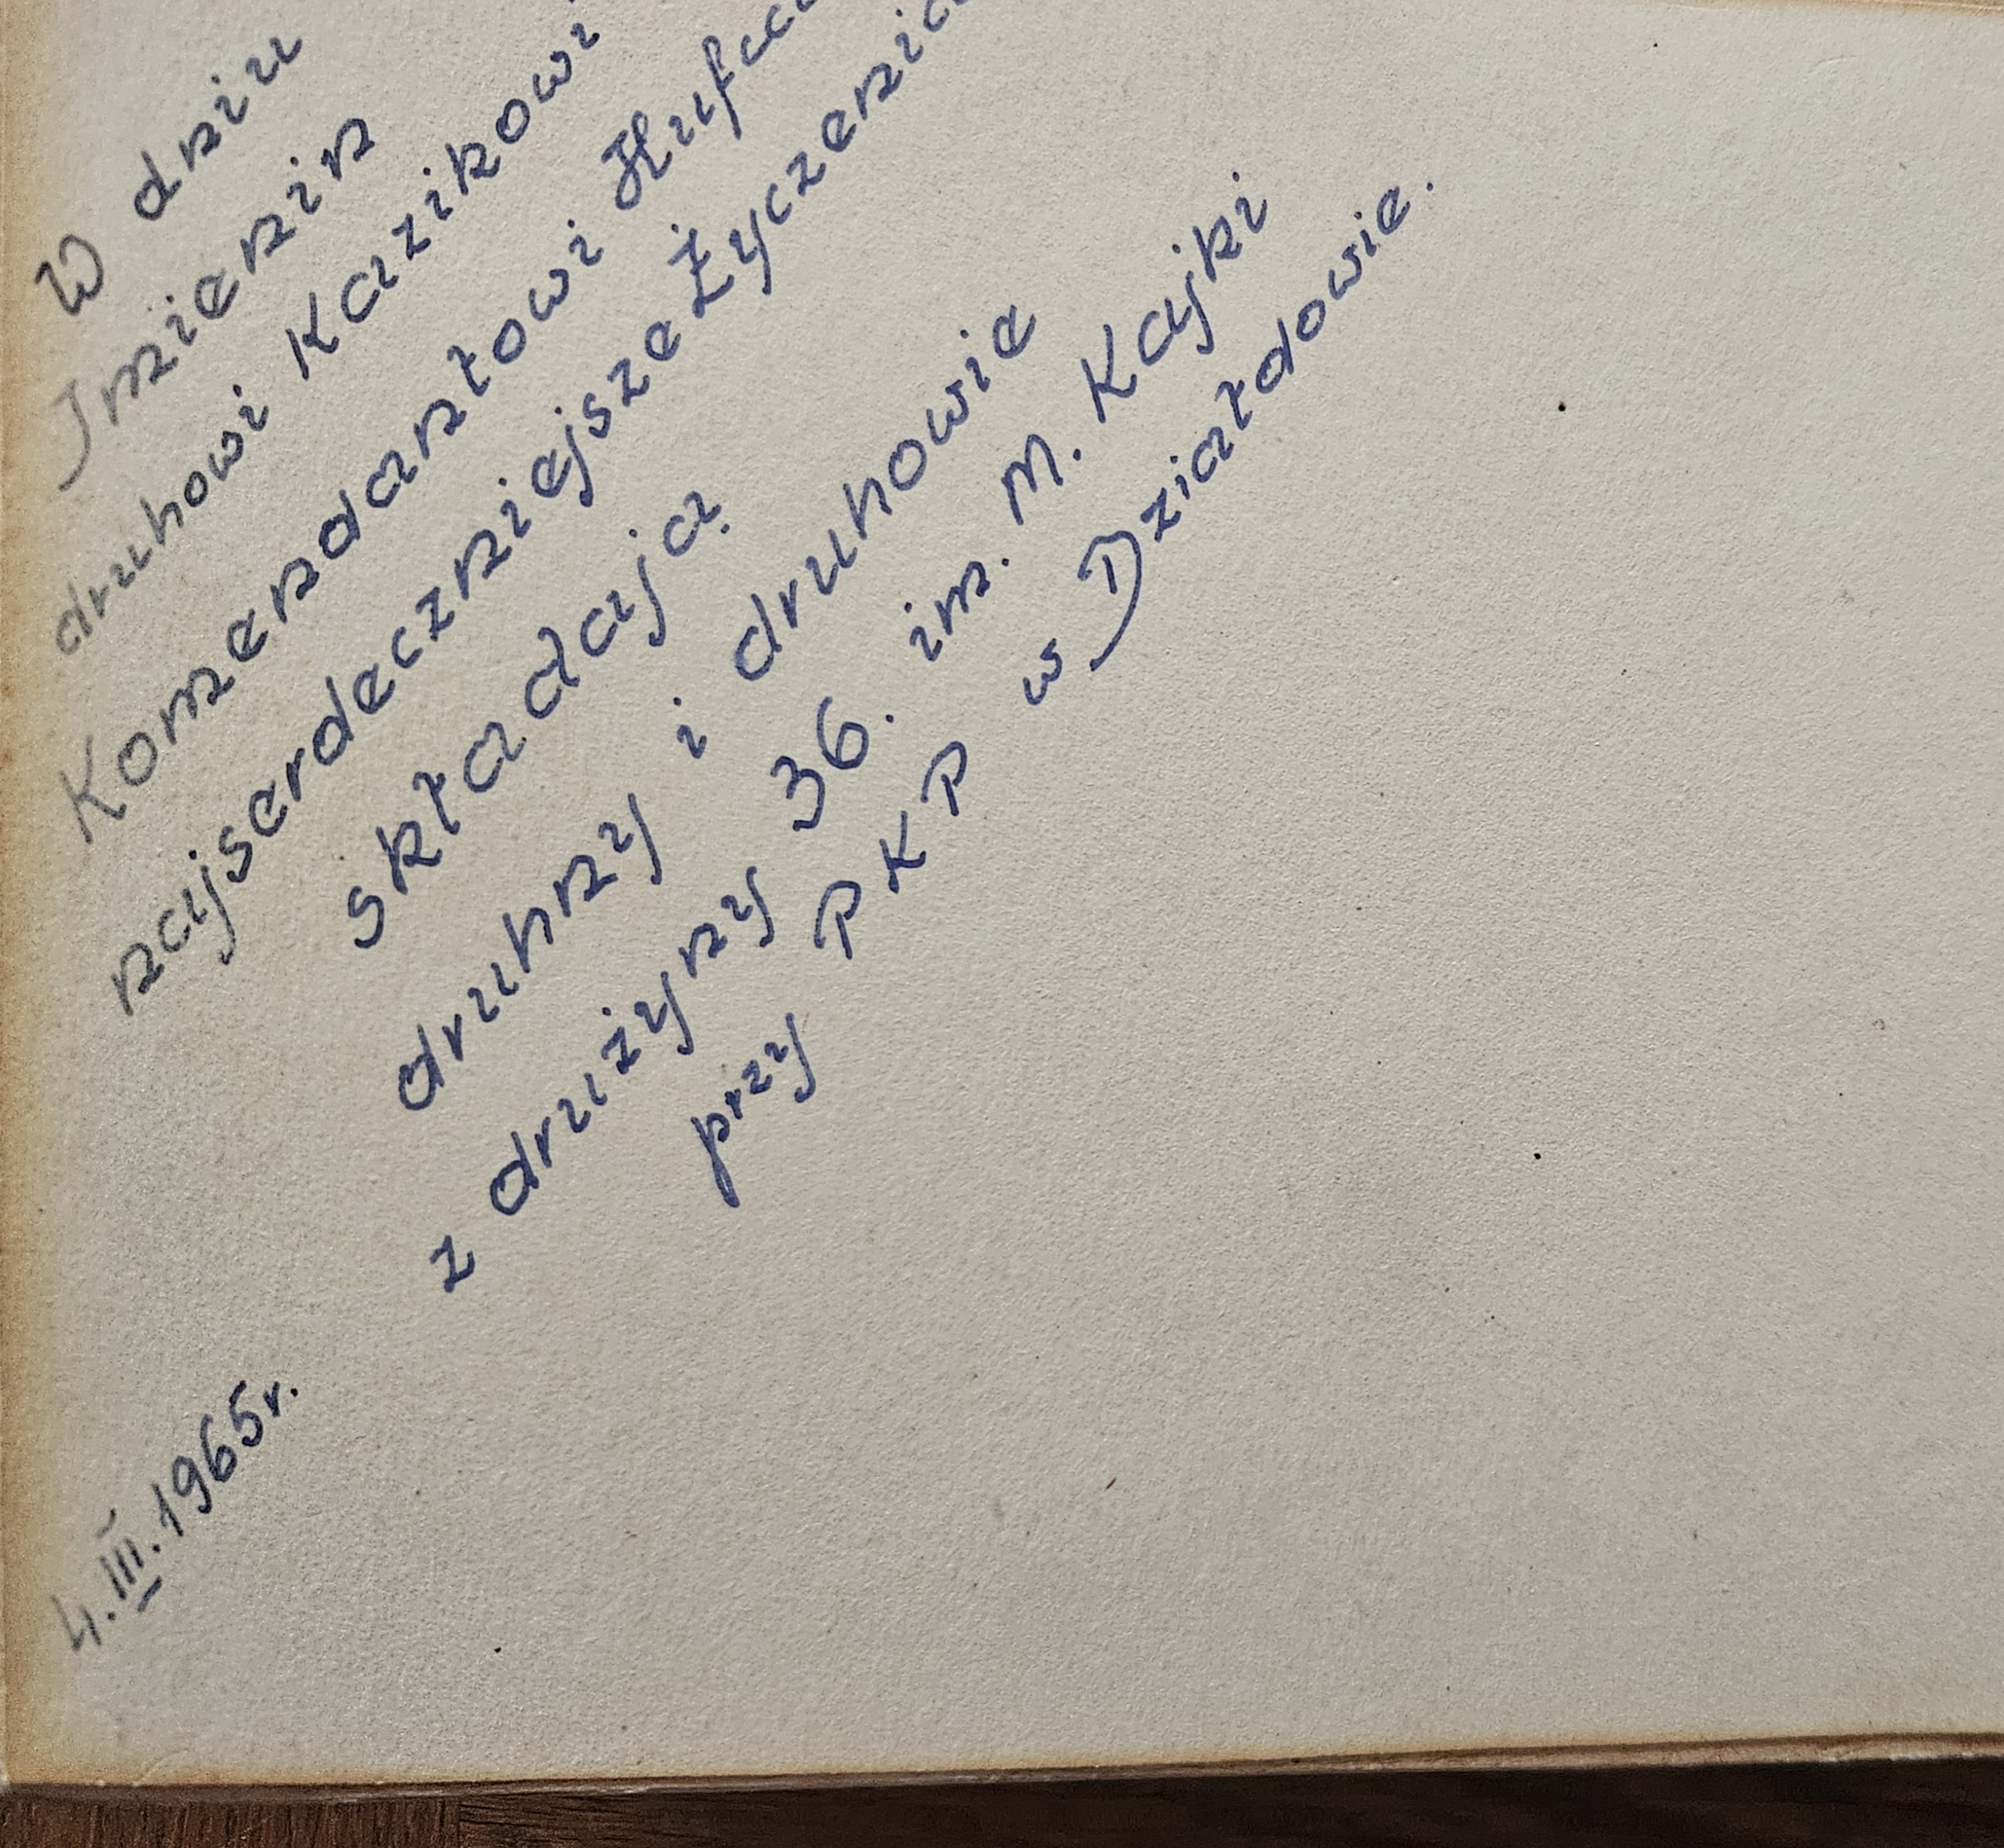 W dniu
Imienin
druhowi Kazikowi
Komendantowi
najserdeczniejsze
składają
druhny i druhowie
z drużyny 36. im. M. Kajki
przy PKP w Działdowie.
4.III.1965r.